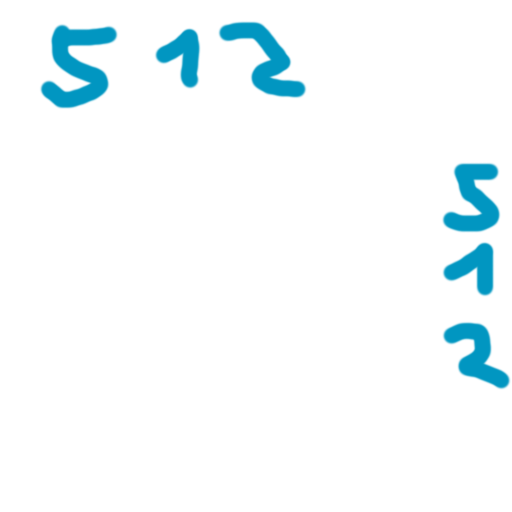 512
5
1
2